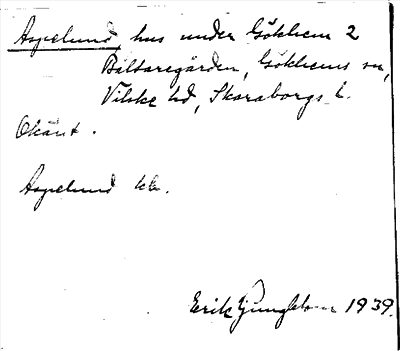 Aspelund, hus under Gökhem 2
Baltaregården, Gökhems sn,
Vilske hd, Skaraborgs l.
Okänt.
Aspelund
Erik Ljungblom 1939.